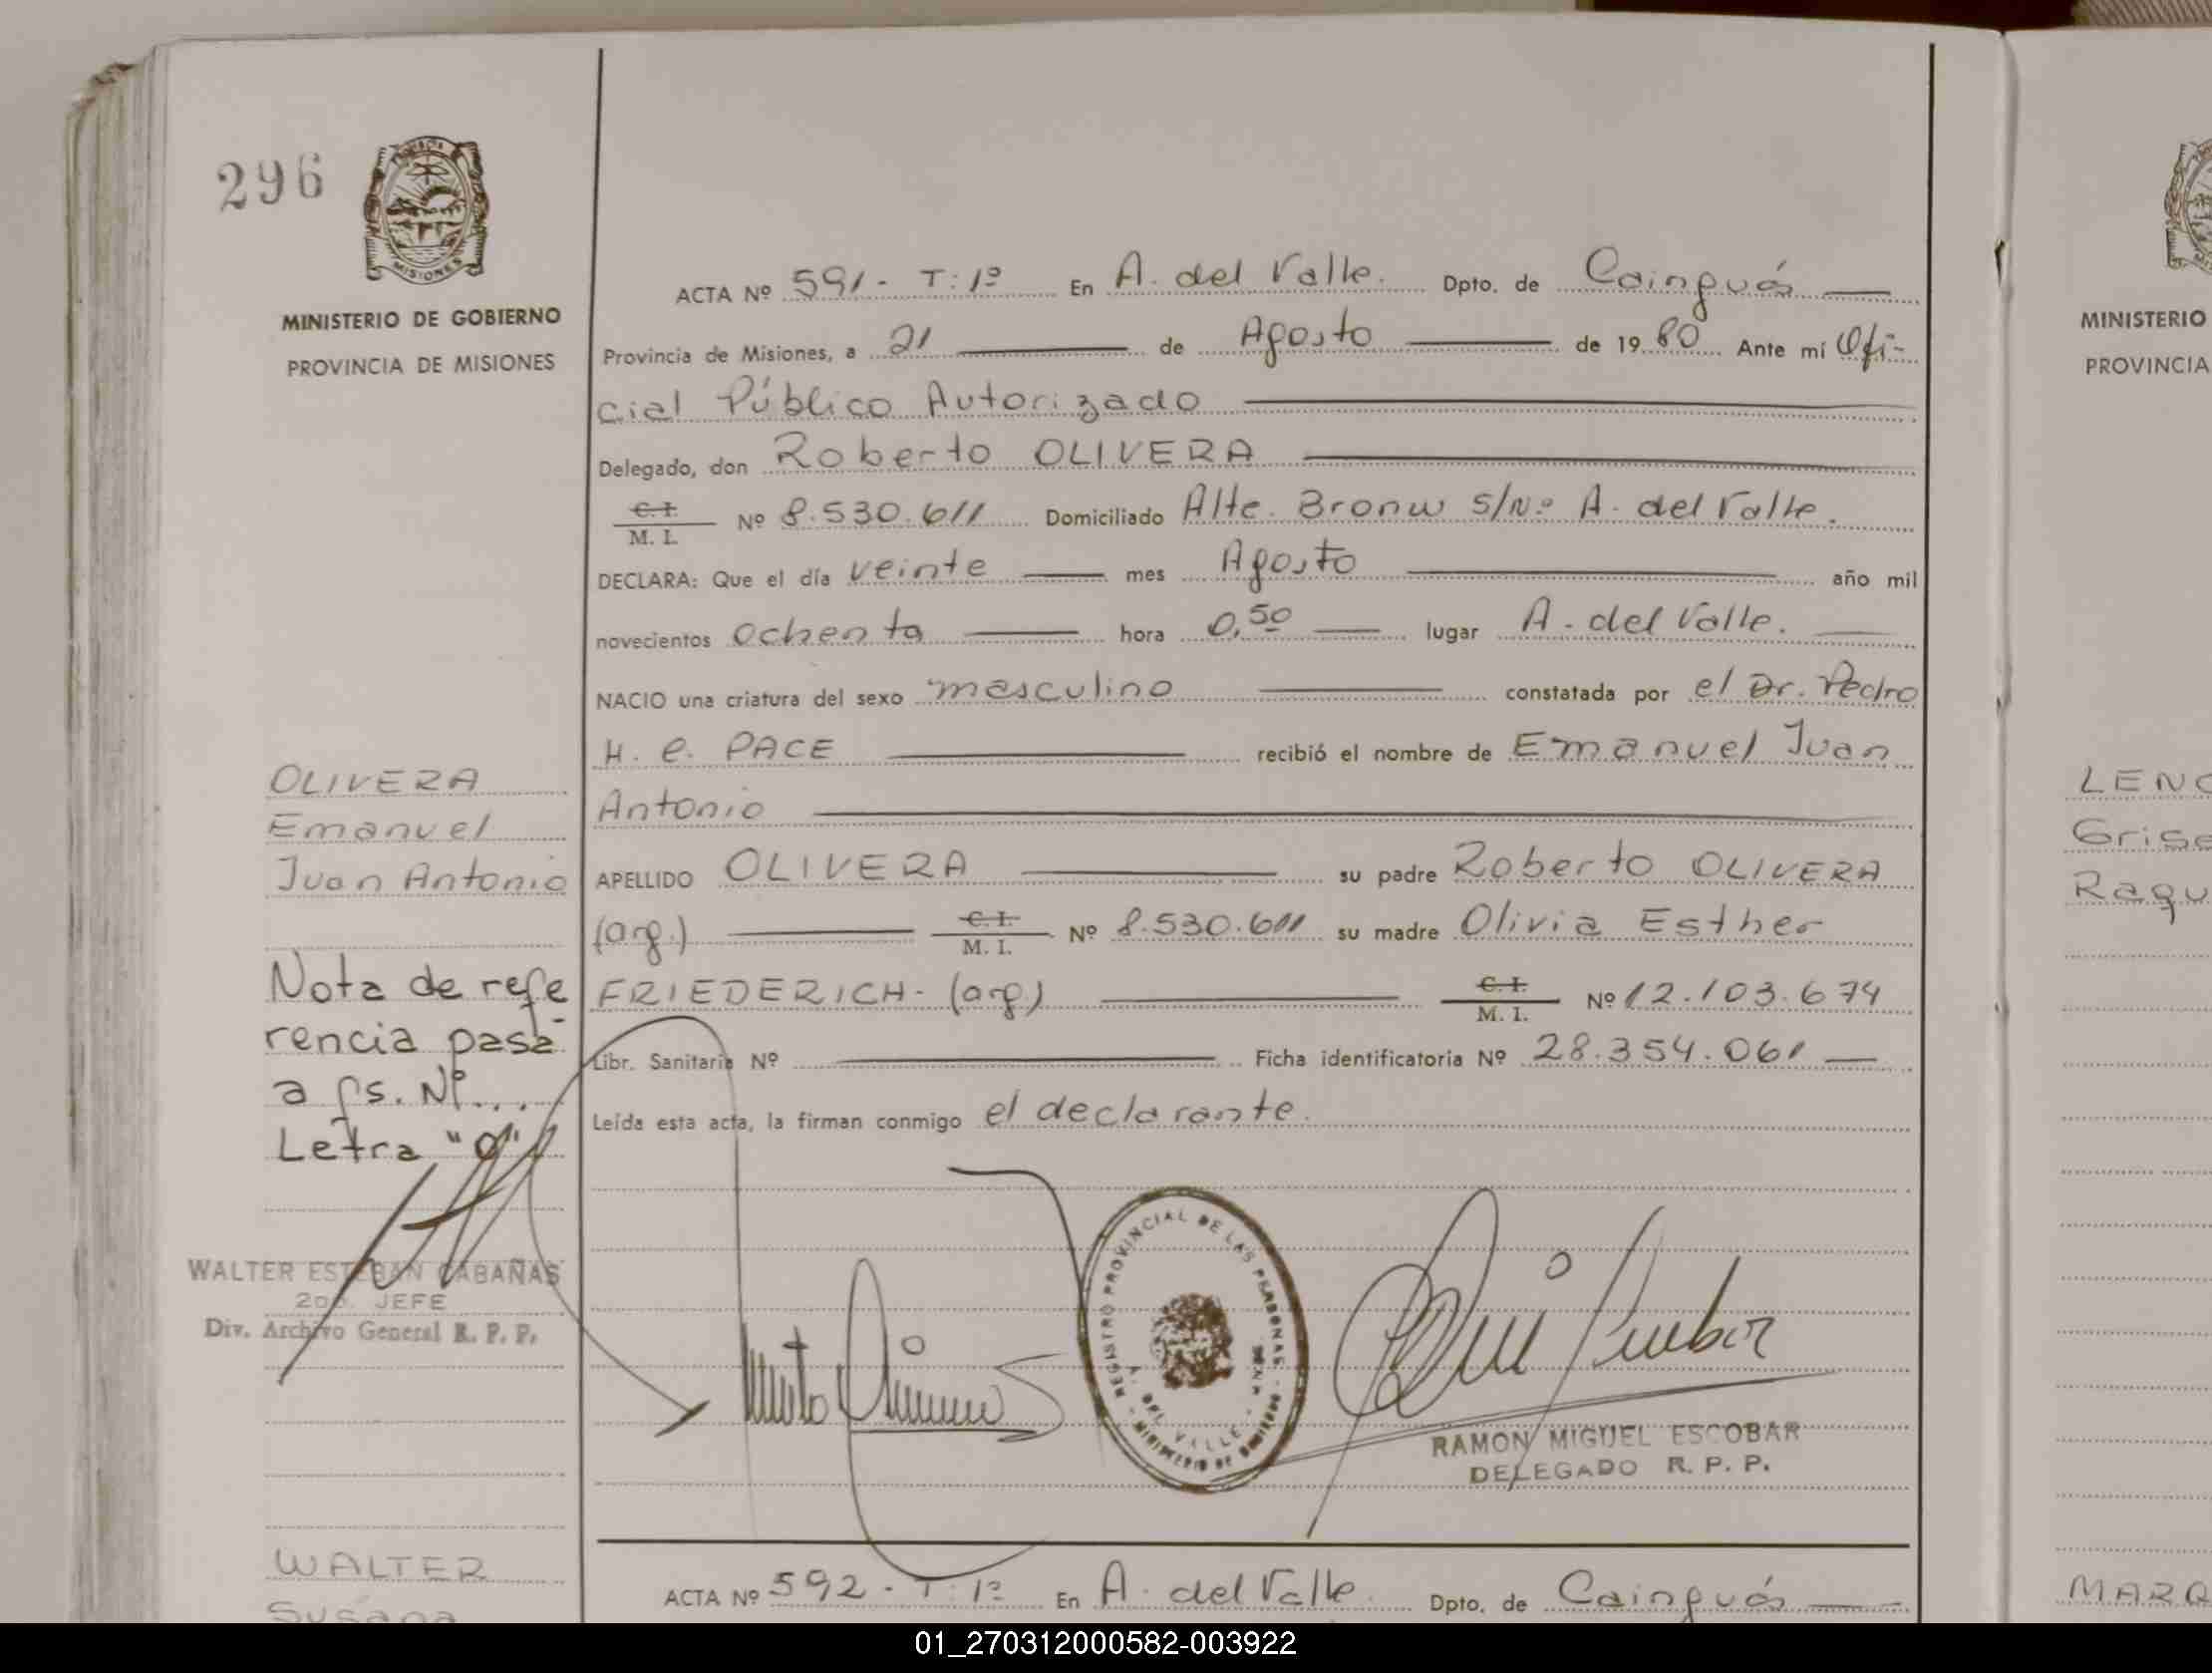 296
MISIONES
MINISTERIO DE GOBIERNO
PROVINCIA DE MISIONES
ACTA Nº 591 - T: 1º En A. del Valle. Dpto. de Cainguás
Provincia de Misiones, a 21 de Agosto de 1980 Ante mí Ofi-
cial Público Autorizado
Delegado, don Roberto OLIVERA
C. I.
M. I. Nº 8.530.611 Domiciliado Alte. Bronw S/Nº A. del Valle.
DECLARA: Que el día veinte mes Agosto año mil
novecientos ochenta hora 0,50 lugar A. del Valle.
NACIO una criatura del sexo masculino constatada por el Dr. Pedro
H. C. PACE recibió el nombre de Emanuel Juan
Antonio
APELLIDO OLIVERA su padre Roberto OLIVERA
(arg.) C. I.
M. I. Nº 8.530.611 su madre Olivia Esther
FRIEDERICH - (arg) C. I.
M. I. Nº 12.103.674
Libr. Sanitaria Nº Ficha identificatoria Nº 28.354.061
Leída esta acta, la firman conmigo el declarante.
OLIVERA
Emanuel
Juan Antonio
Nota de refe
rencia pasa
a fs. Nº...
Letra "O"
WALTER ESTEBAN CABAÑAS
2do. JEFE
Div. Archivo General R. P. P.
REGISTRO PROVINCIAL DE LAS PERSONAS
A. DEL VALLE
MINISTERIO DE GOBIERNO
RAMON MIGUEL ESCOBAR
DELEGADO R. P. P.
WALTER
Susana
ACTA Nº 592 - T: 1º En A. del Valle Dpto. de Cainguás
MINISTERIO
PROVINCIA
LENC
Grise
Raqu
MARQ
01_270312000582-003922